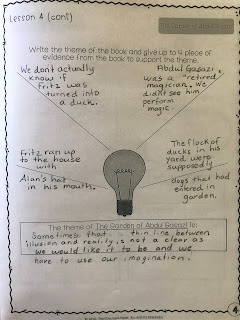 Lesson 4 (cont)
The Garden of Abdul Gasazi
Write the theme of the book and give up to 4 piece of
evidence from the book to support the theme.
We don't actually
know if
Fritz was
turned into
a duck.
Abdul Gasazi
was a "retired"
magician. We
didn't see him
perform
magic.
Fritz ran up
to the house
with
Alan's hat
in his mouth.
The flock of
ducks in his
yard were
supposedly
dogs that had
entered in
garden.
The theme of The Garden of Abdul Gasazi is:
Sometimes that thin line between
illusion and reality is not a clear as
we would like it to be and we
have to use our imagination.
4